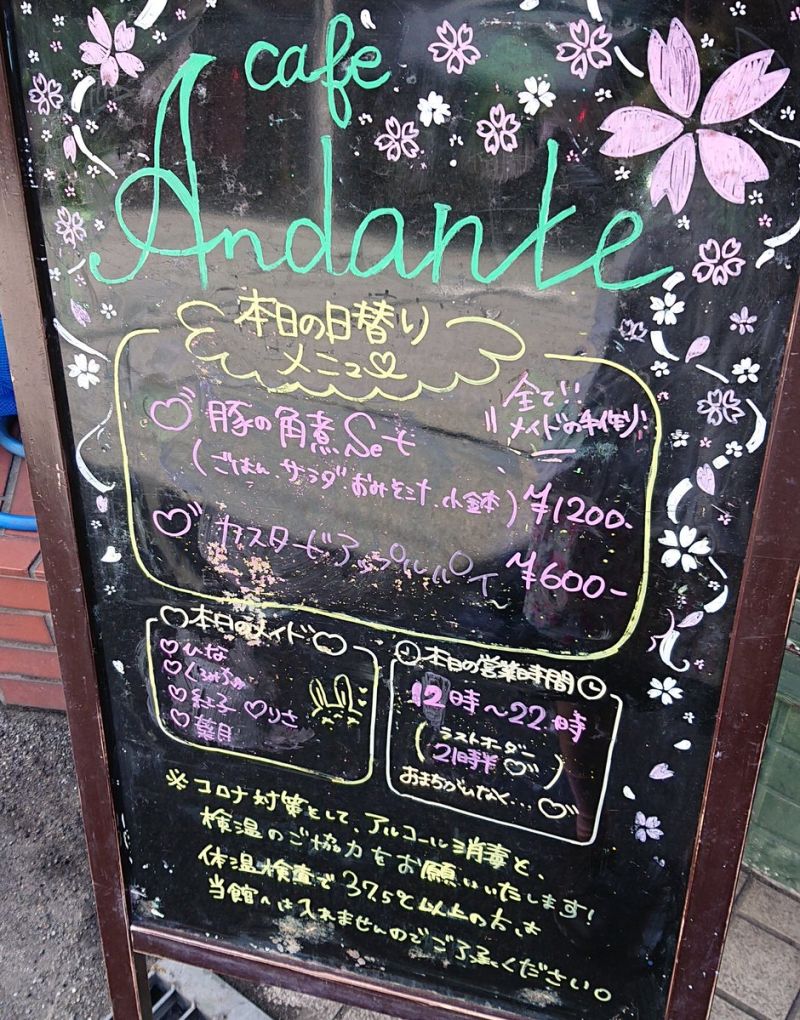 cafe
Andante
本日の日替り
メニュー
全て!!
メイドの手作り!
豚の角煮Set
(ごはん、サラダ、おみそ汁、小鉢) ¥1200-
カスタードアップルパイ ¥600-
本日のメイド
ひな
くるみちゃ
紅子 りさ
葉月
本日の営業時間
12時～22時
(ラストオーダー
21時半)
おまちがいなく…
※コロナ対策として、アルコール消毒と、
検温のご協力をお願いいたします!
体温検査で37.5℃以上の方は
当館へは入れませんのでご了承ください。